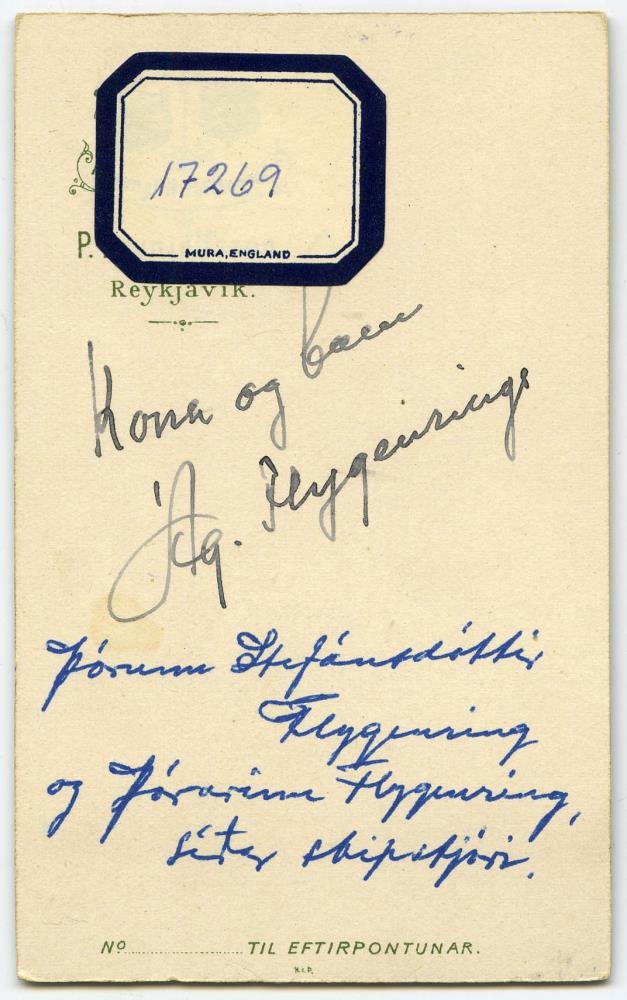 17269
MURA, ENGLAND
P.
Reykjavík.
Kona og barn
Ág. Flygenrings
Þórunn Stefánsdóttir
Flygenring
og Þórarinn Flygenring,
síðar skipstjóri.
No TIL EFTIRPÖNTUNAR.